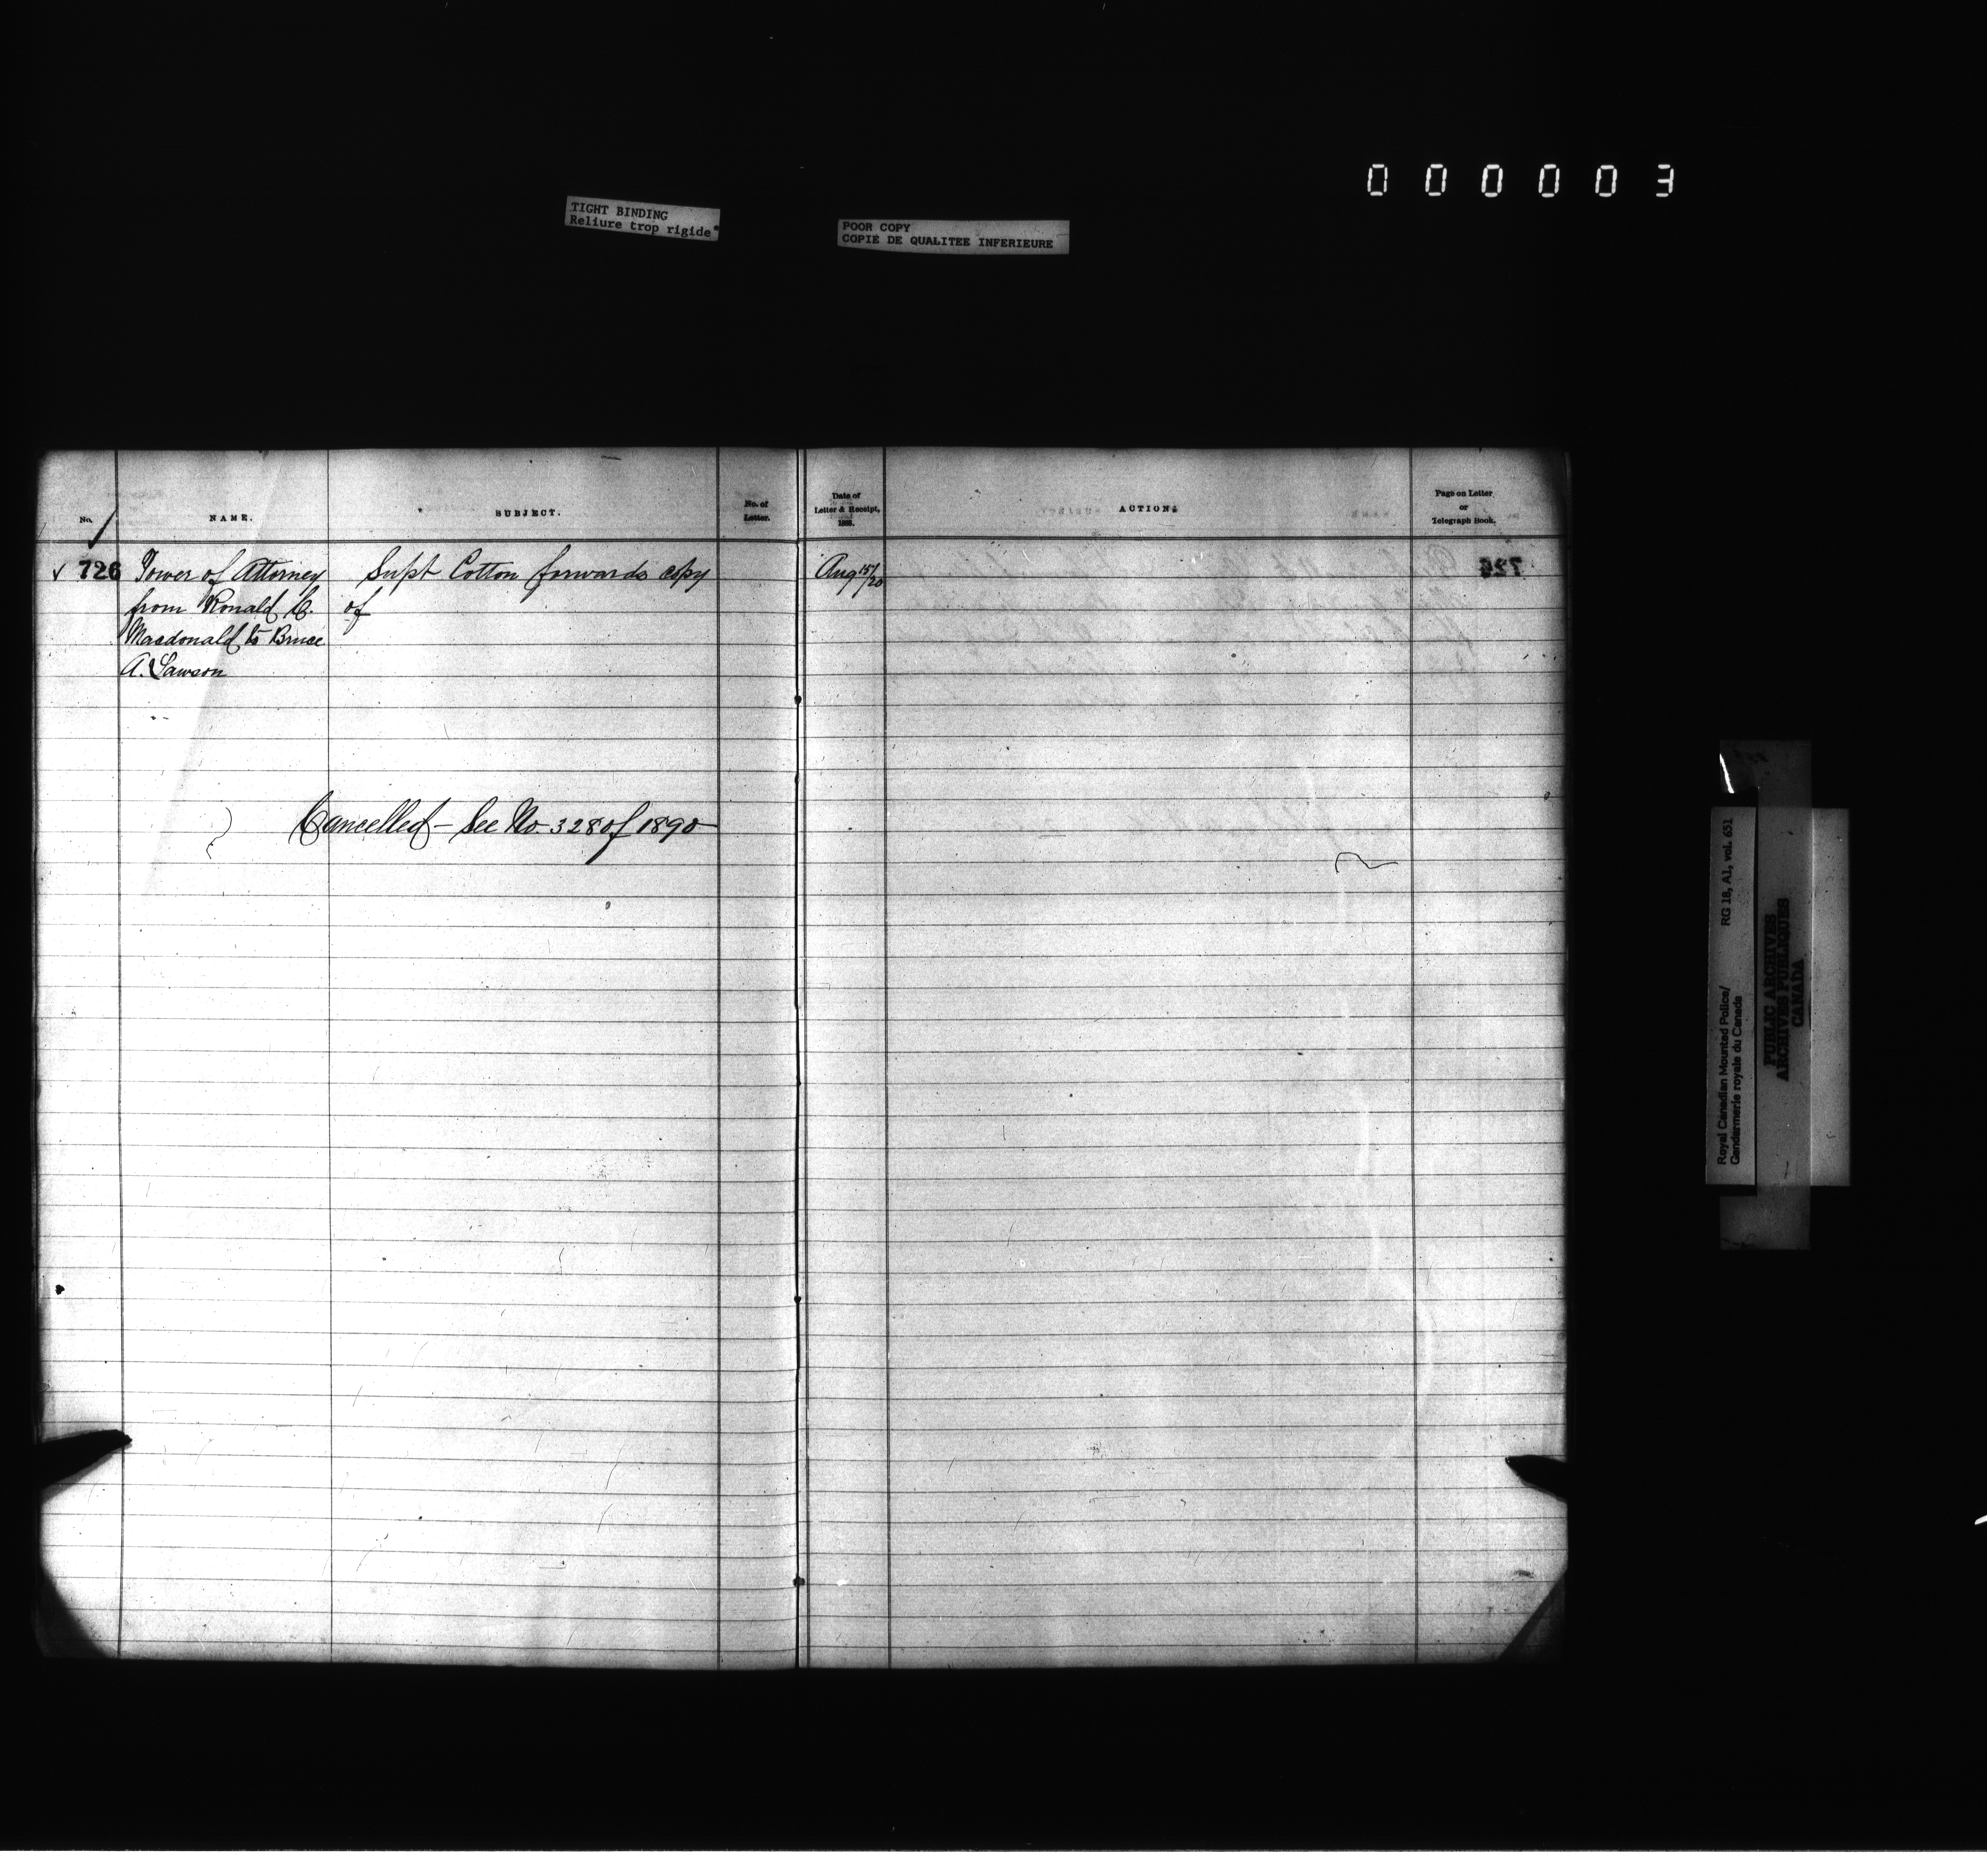 000003
TIGHT BINDING
Reliure trop rigide
POOR COPY
COPIE DE QUALITEE INFERIEURE
No.
NAME.
SUBJECT.
No. of
Letter.
Date of
Letter & Receipt,
188 .
ACTION.
Page on Letter
or
Telegraph Book.
✓ 726 Power of Attorney Supt Cotton forwards copy Aug 15/20
from Ronald C. of
Macdonald to Bruce
A. Lawson
Cancelled - See No. 328 of 1890
Royal Canadian Mounted Police/ RG 18, A1, vol. 651
Gendarmerie royale du Canada
PUBLIC ARCHIVES
ARCHIVES PUBLIQUES
CANADA